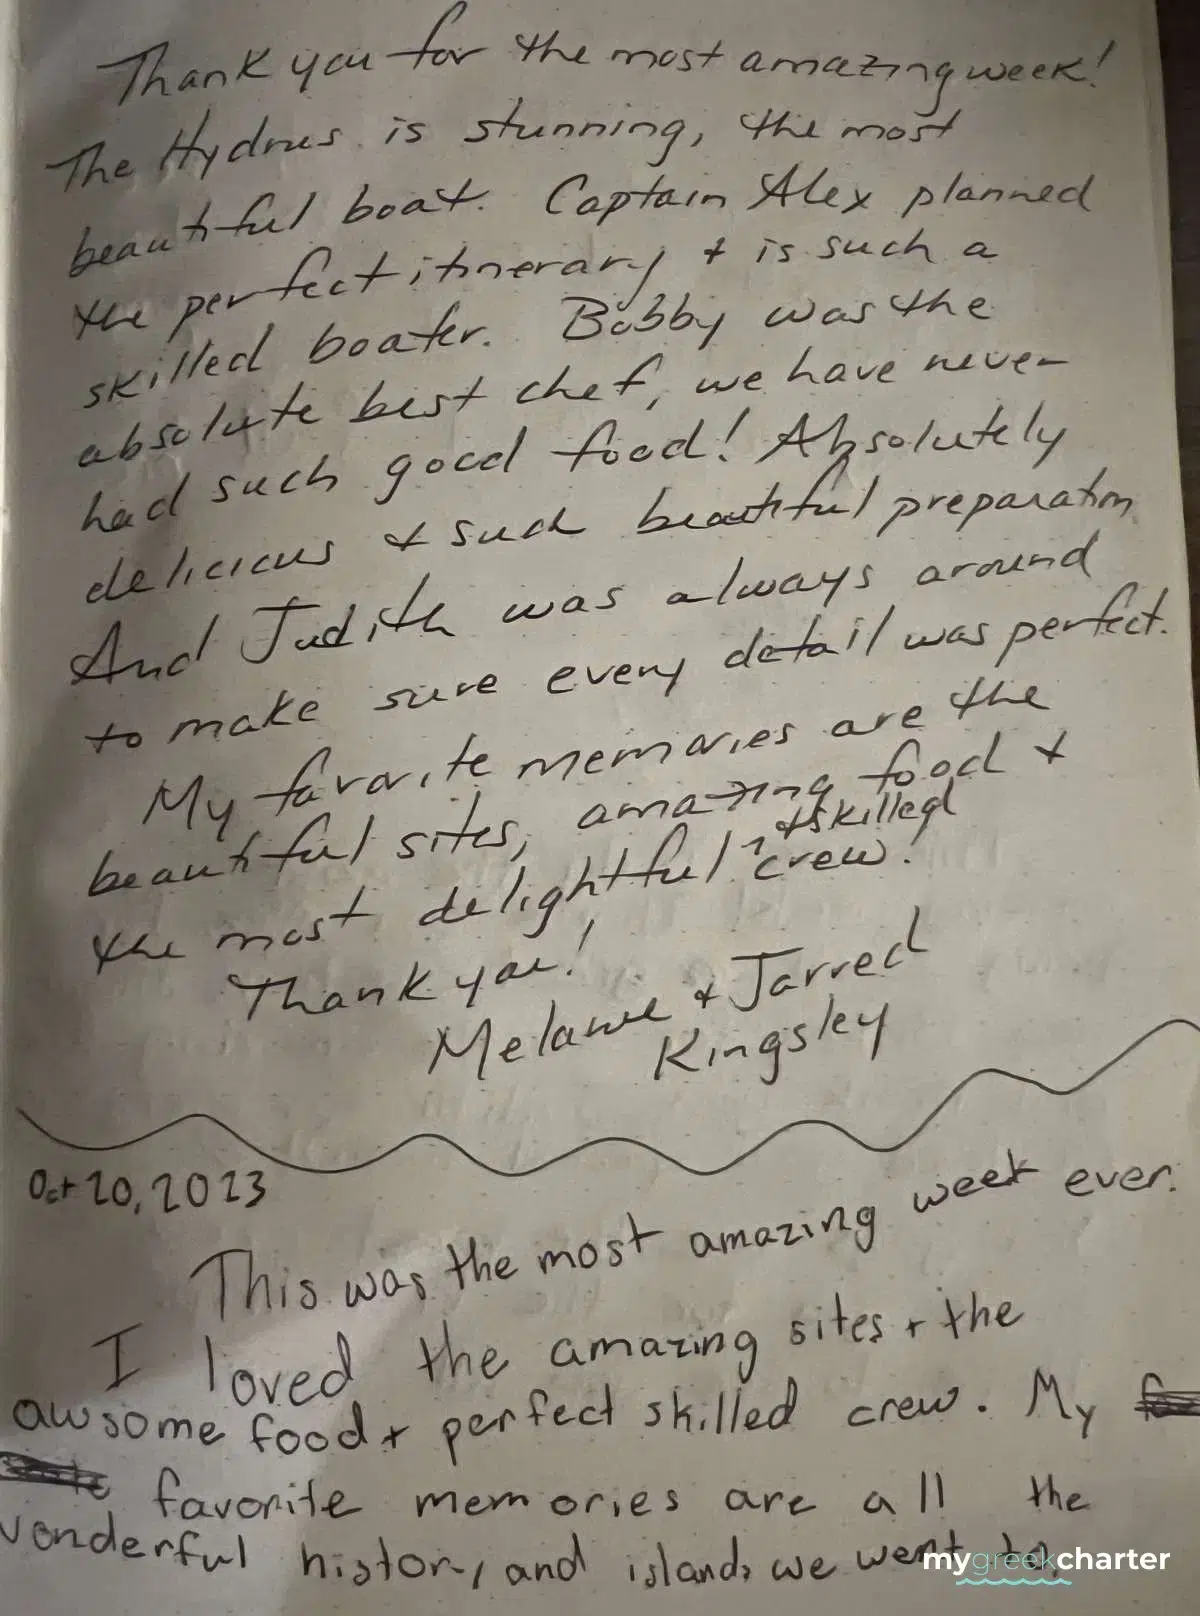 Thank you for the most amazing week!
The Hydrus is stunning, the most
beautiful boat. Captain Alex planned
the perfect itinerary & is such a
skilled boater. Bobby was the
absolute best chef, we have never
had such good food! Absolutely
delicious & such beautiful preparation
And Judith was always around
to make sure every detail was perfect.
My favorite memories are the
beautiful sites, amazing food &
the most delightful & skilled crew!
Thank you!
Melanie & Jarred
Kingsley
Oct 20, 2023
This was the most amazing week ever.
I loved the amazing sites + the
awsome food + perfect skilled crew. My
favorite memories are all the
wonderful history and islands we went to.
mygreekcharter